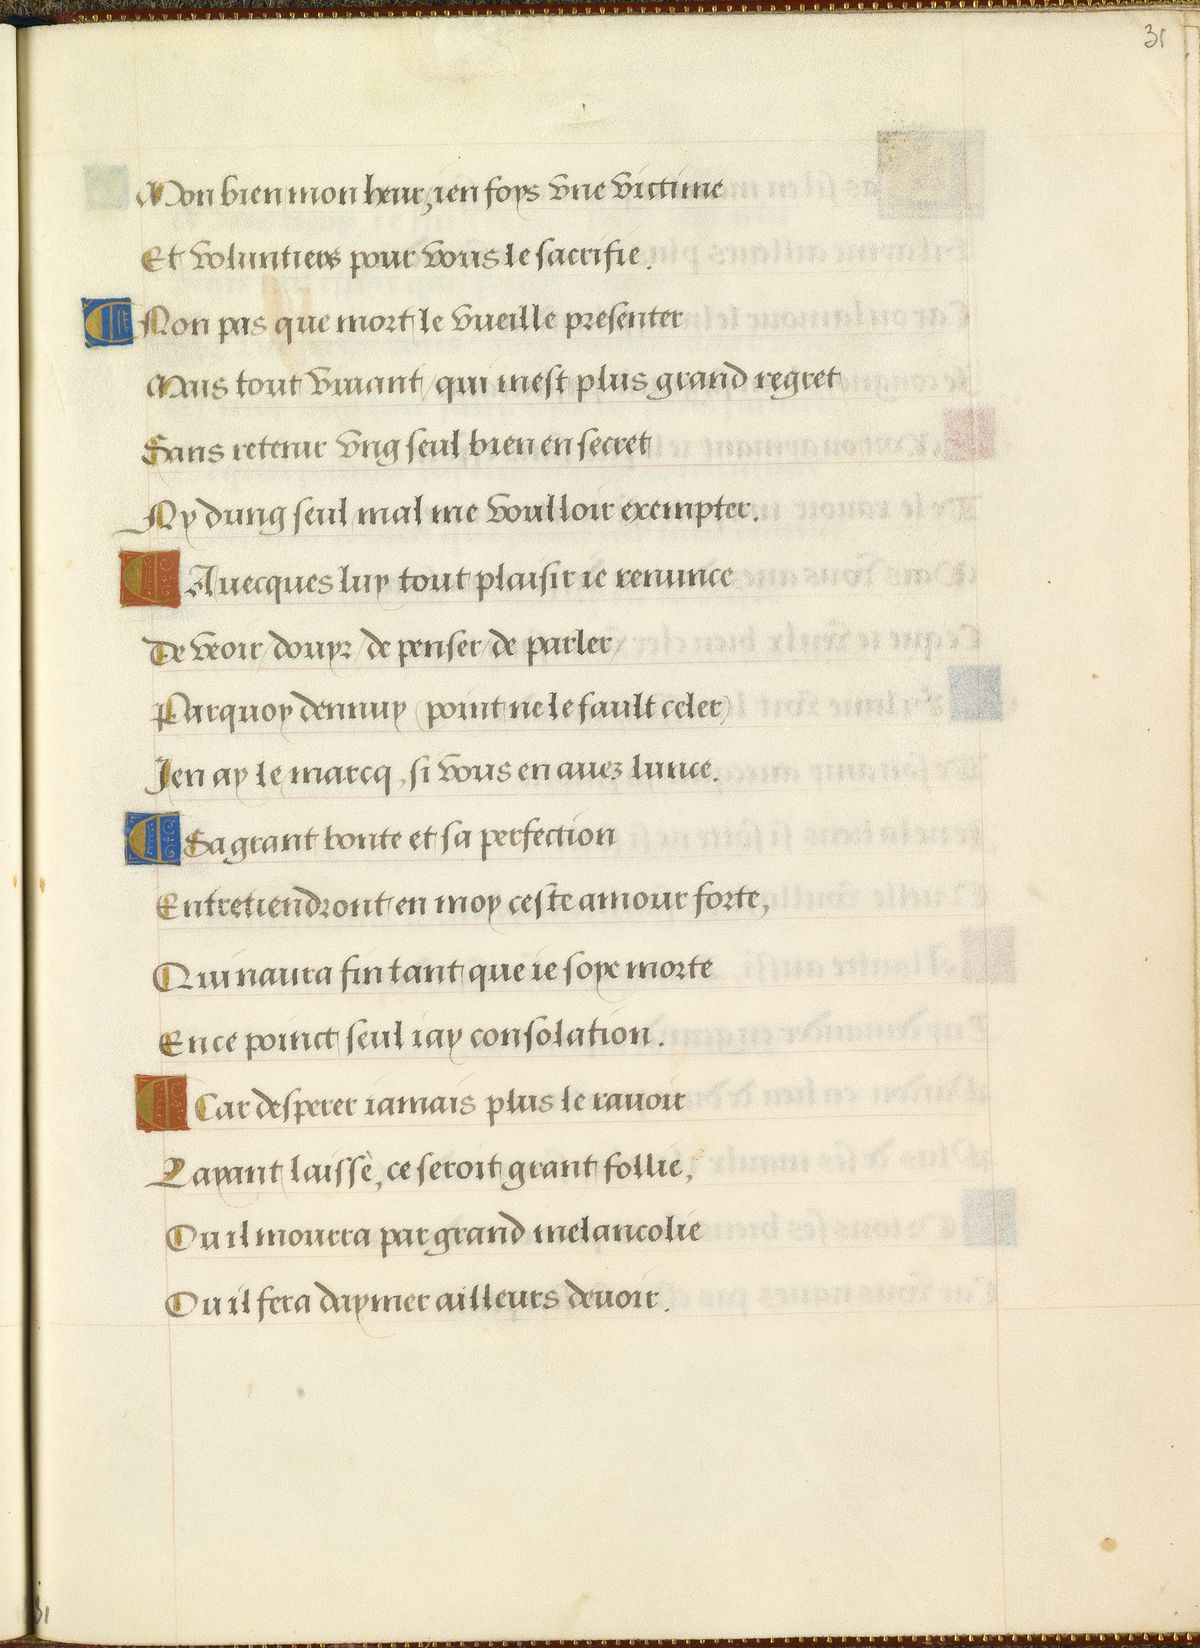 31
Mon bien mon heur, ien foys vne victime
Et voluntiers pour vous le sacrifie.
Non pas que mort le vueille presenter
Mais tout viuant / qui mest plus grand regret
Sans retenir vng seul bien en secret
Ny dung seul mal me voulloir exempter.
Auecques luy tout plaisir ie renunce
De veoir / douyr / de penser / de parler
Parquoy dennuy (point ne le fault celer)
Jen ay le marcq, si vous en auez lunce.
Sa grant bonte et sa perfection
Entretiendront en moy ceste amour forte,
Qui naura fin tant que ie soye morte
En ce poinct seul iay consolation.
Car desperer iamais plus le rauoir
Layant laissè, ce seroit grant follie,
Ou il mourra par grand melancolie
Ou il fera daymer ailleurs deuoir.